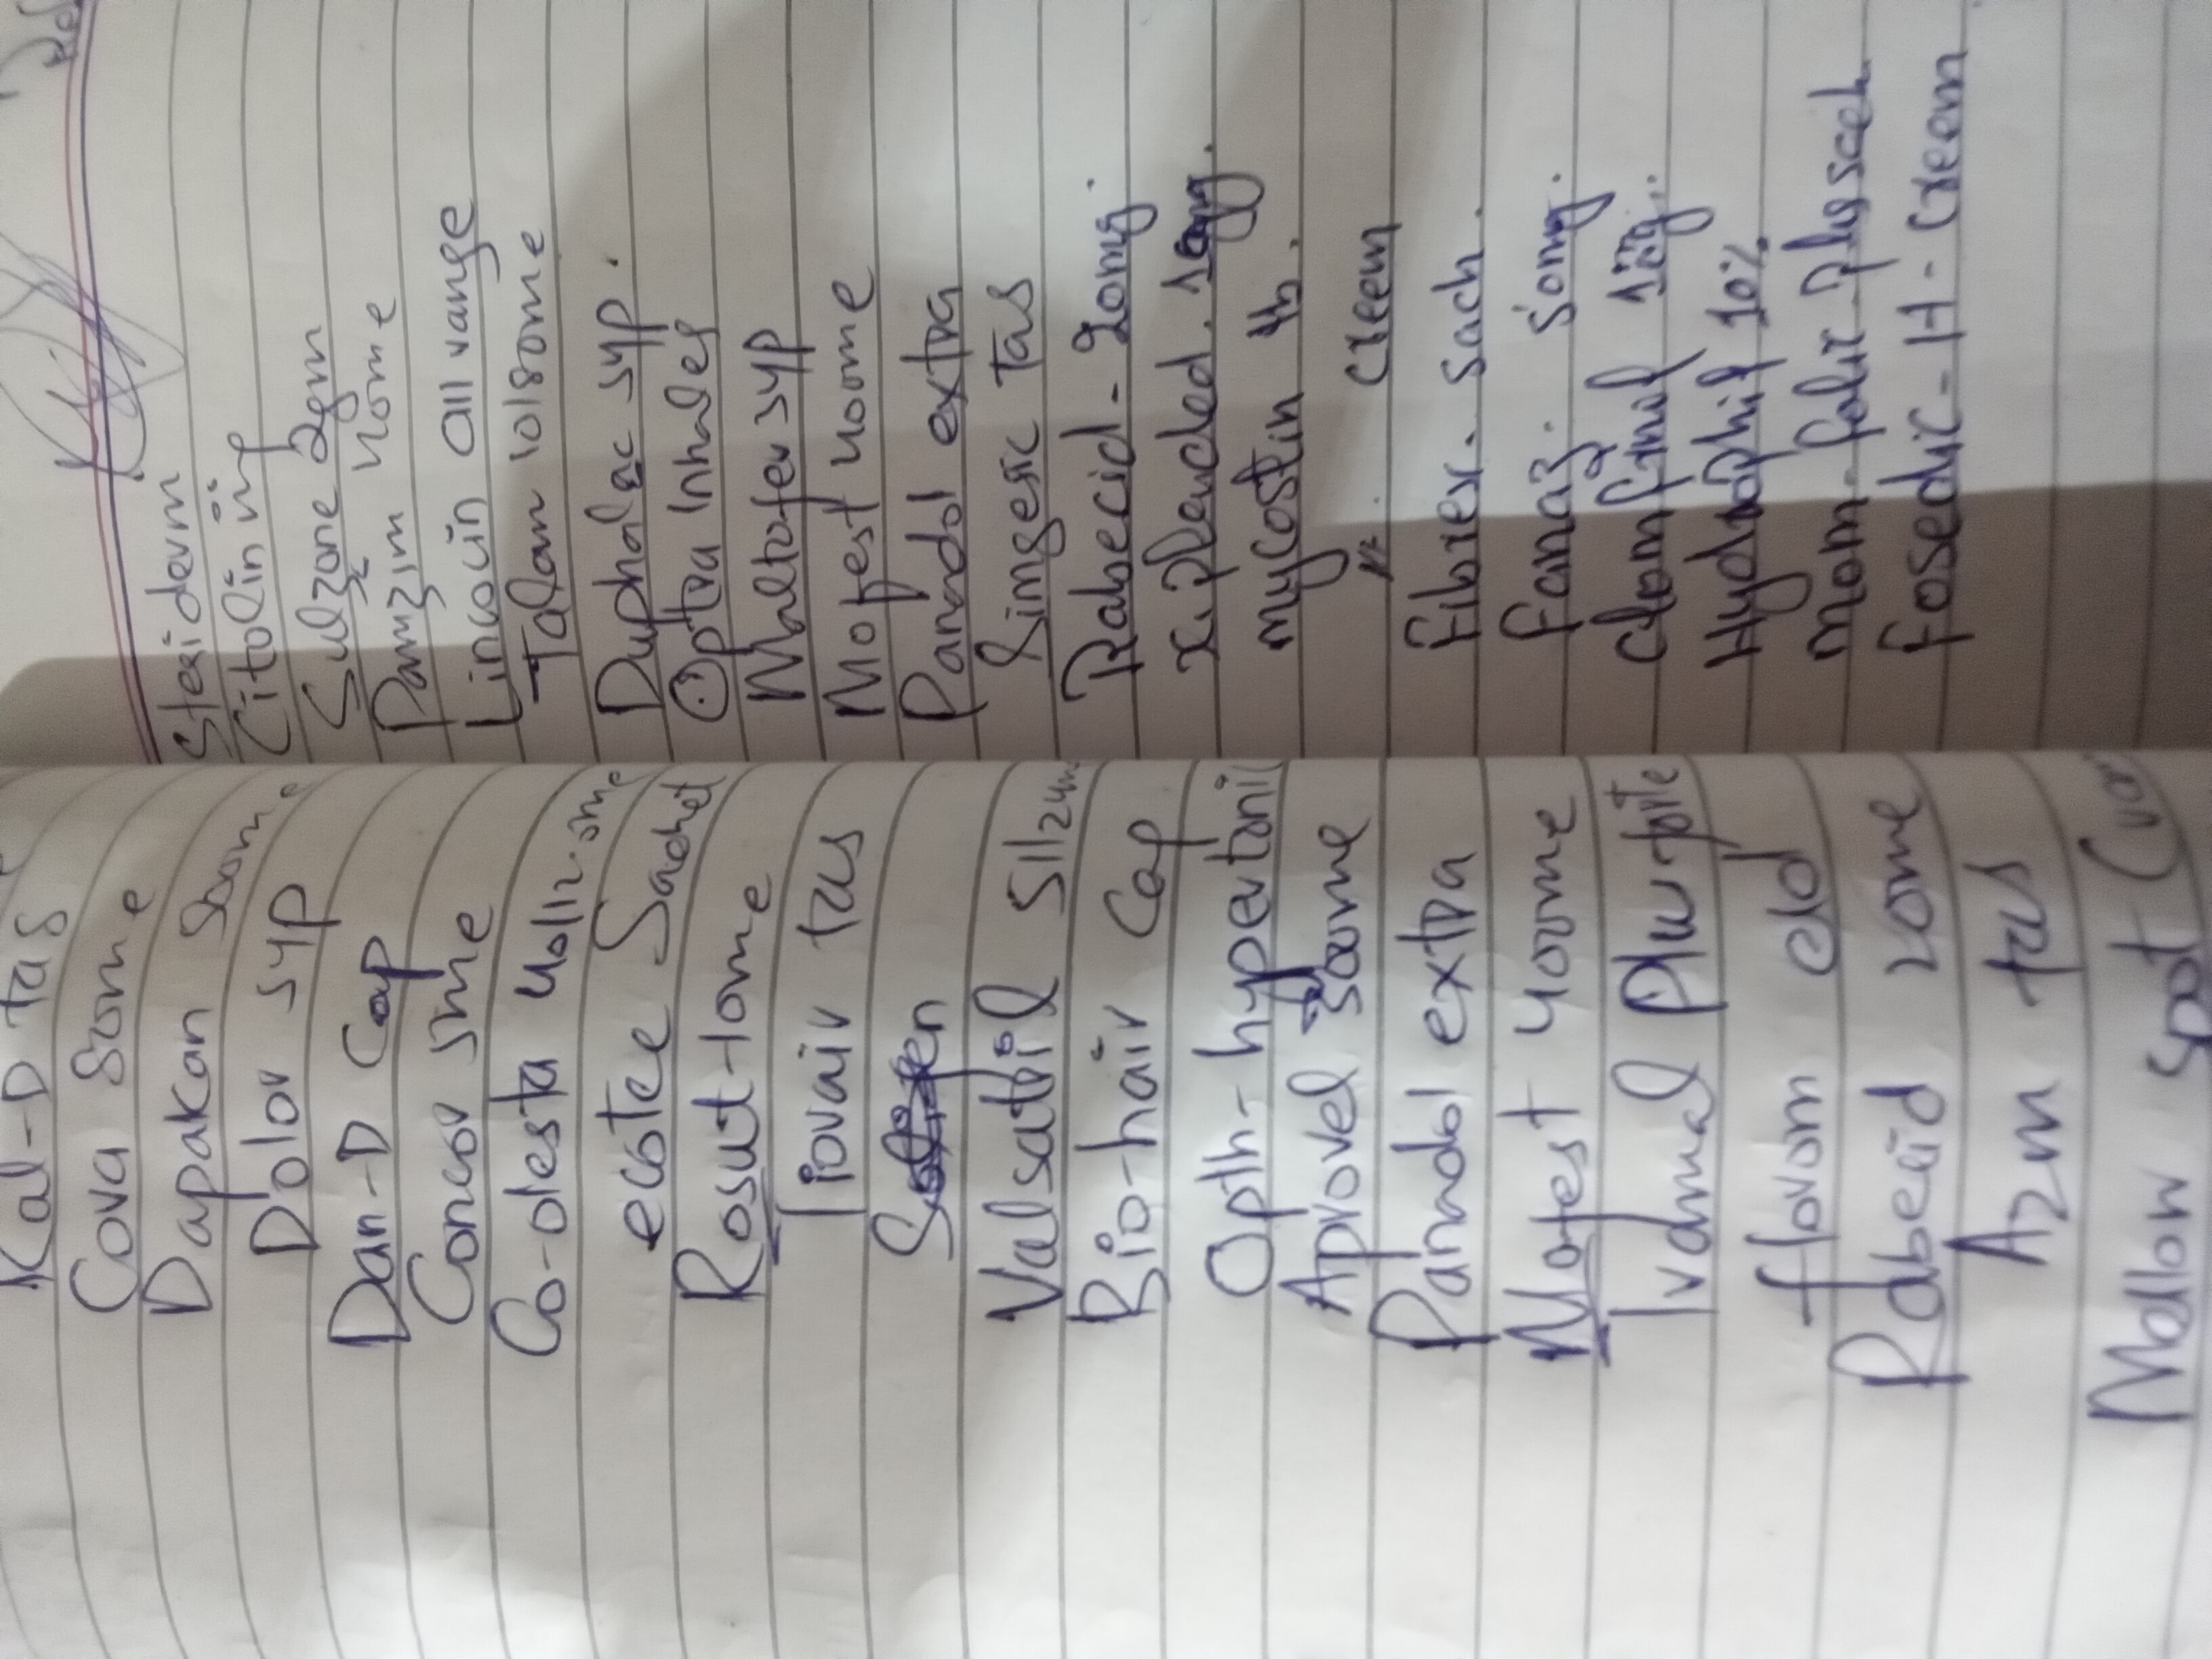 Kal-D tas
Cova 80mg
Dapakan 500mg
Dolor syp
Dan-D Cap
Concor 5mg
Co-olesta 40/12.5mg
ecotec Sachet
Rosut-10mg
Iovair tas
Valsatril 51/2
Bio-hair Cap
Opth-hypertonic
Aprovel
Panadol extra
Mofest 400mg
Ivamal Plus
flovom eld
Rabecid 20mg
Azm tas
Mallow spot
Steriderm
Citolin inj
Sulzone 2gm
Pamzim 40mg
Lincocin all range
Talam 10/80mg
Duphalac syp.
Optra Inhaler
Maltofer syp
Mofest 400mg
Panadol extra
Simgesic tas
Rabecid - 20mg.
xiplended.
mycostin
" . cream
Fiberx. sach.
50mg.
Hydrophil 10%
Mom-folic-Plus sach
Fosedic - H - cream